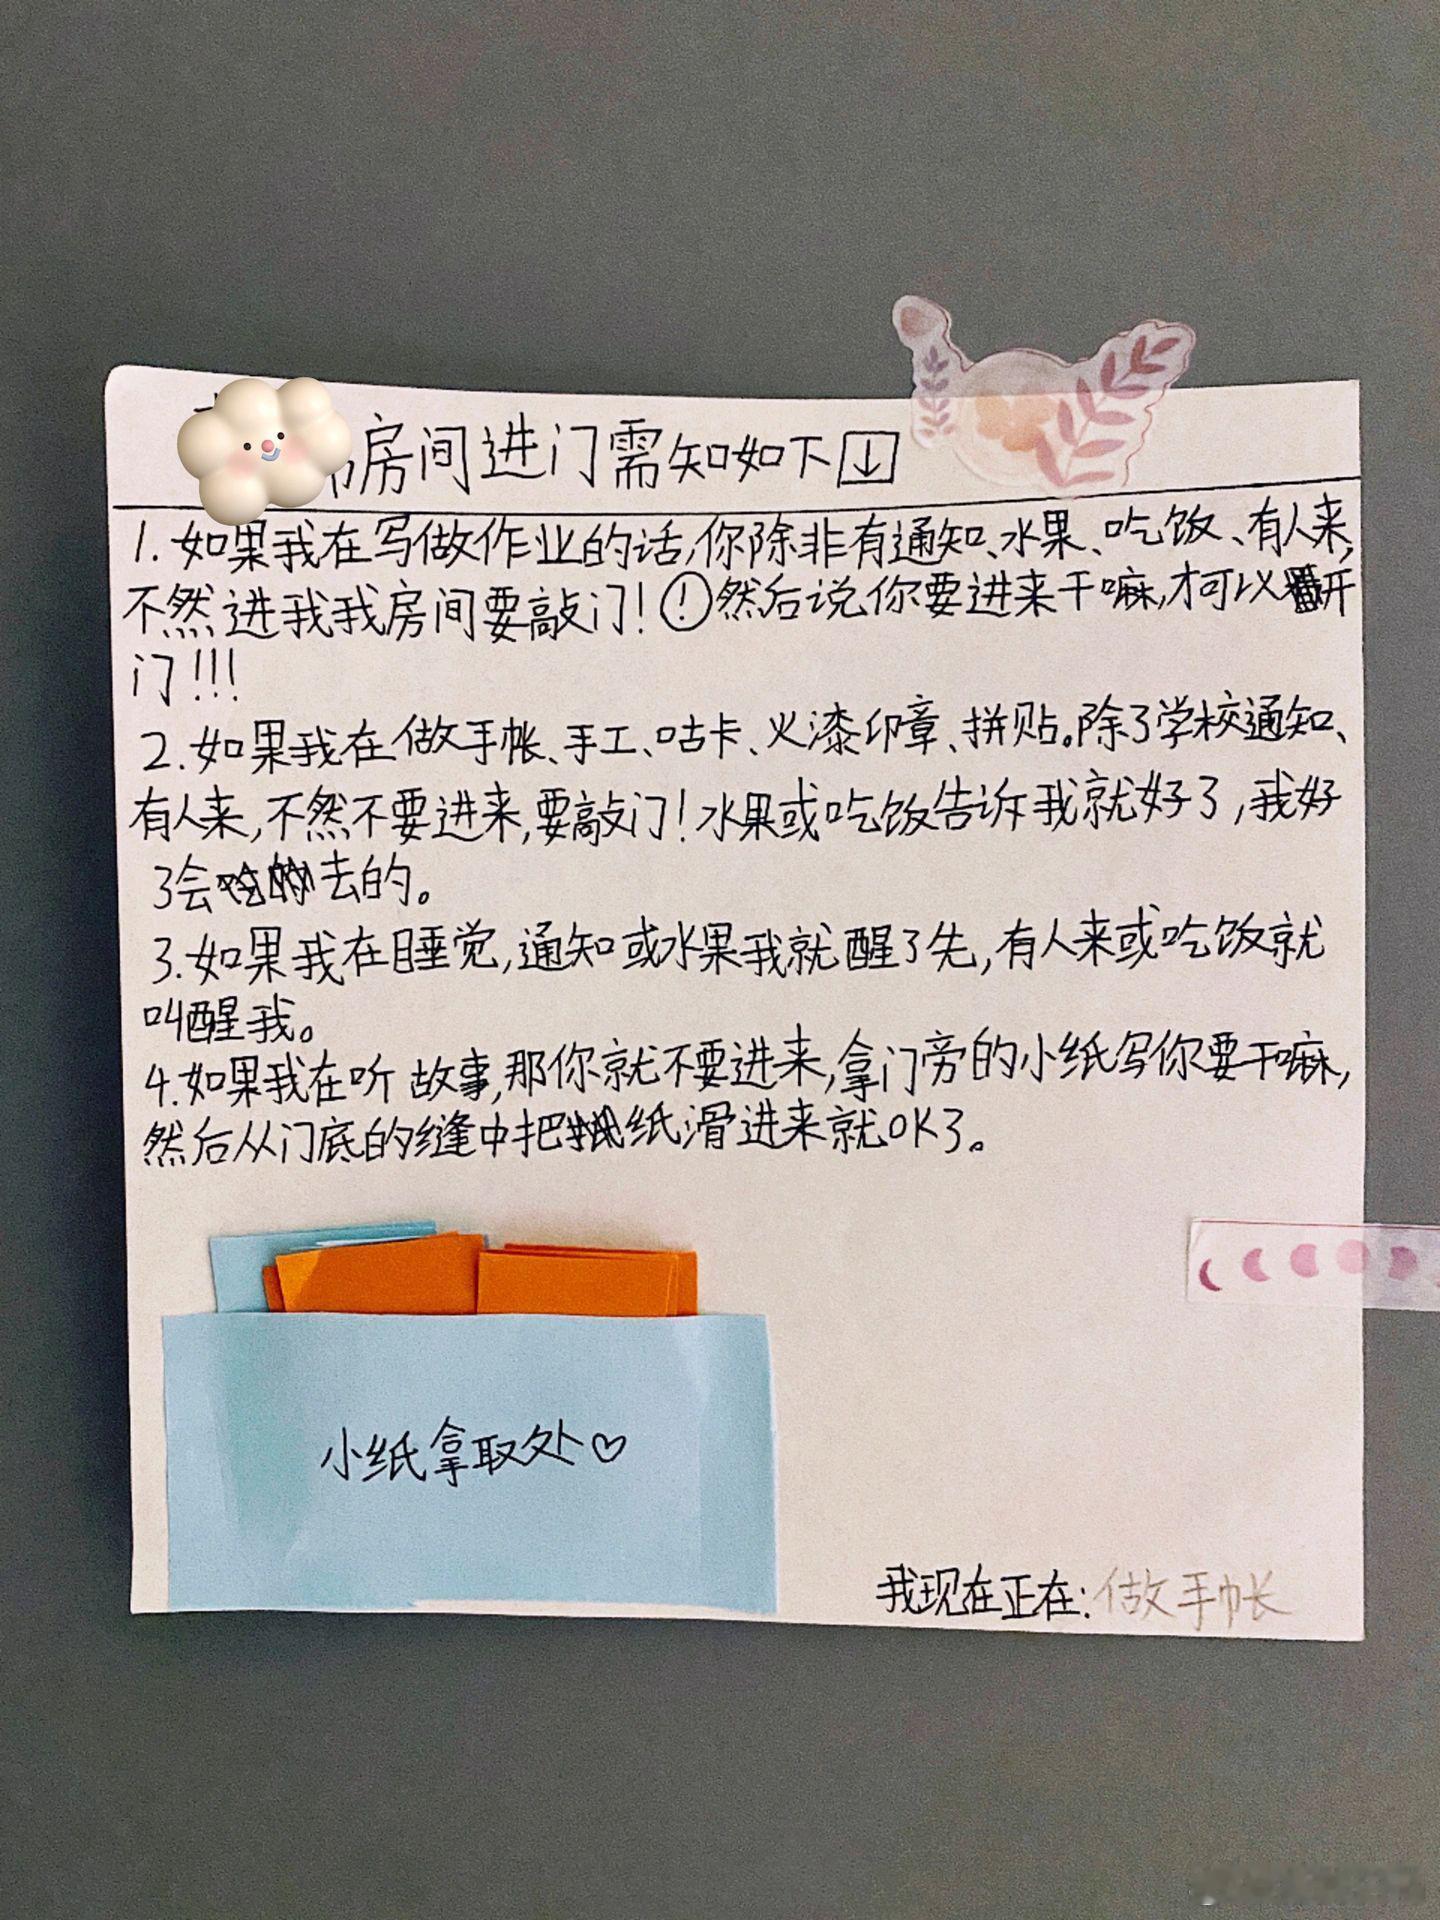 房间进门需知如下↓
1.如果我在写做作业的话,你除非有通知、水果、吃饭、有人来,
不然进我我房间要敲门!!然后说你要进来干嘛,才可以开
门!!!
2.如果我在做手帐、手工、咕卡、火漆印章、拼贴。除了学校通知、
有人来,不然不要进来,要敲门!水果或吃饭告诉我就好了,我好
了会去的。
3.如果我在睡觉,通知或水果我就醒了先,有人来或吃饭就
叫醒我。
4.如果我在听故事,那你就不要进来,拿门旁的小纸写你要干嘛,
然后从门底的缝中把纸滑进来就OK了。
小纸拿取处♡
我现在正在:做手帐